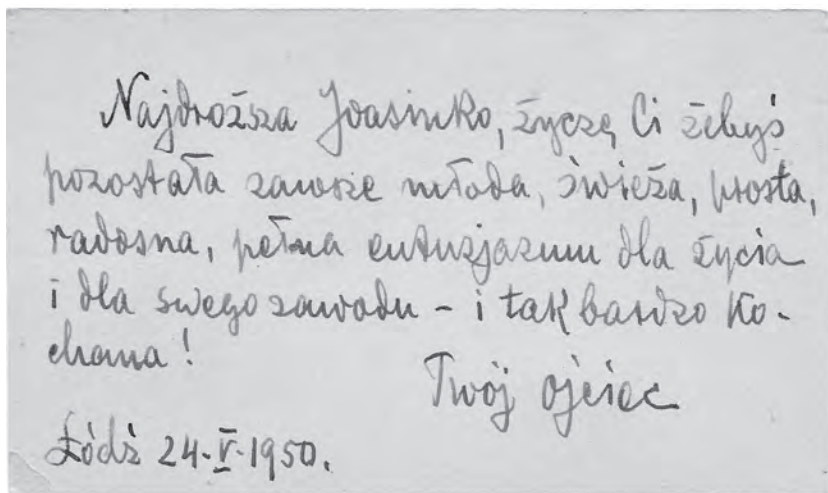 Najdroższa Joasinko, życzę Ci żebyś
pozostała zawsze młoda, świeża, prosta,
radosna, pełna entuzjazmu dla życia
i dla swego zawodu - i tak bardzo ko-
chana!
Twój ojciec
Łódź 24.V.1950.